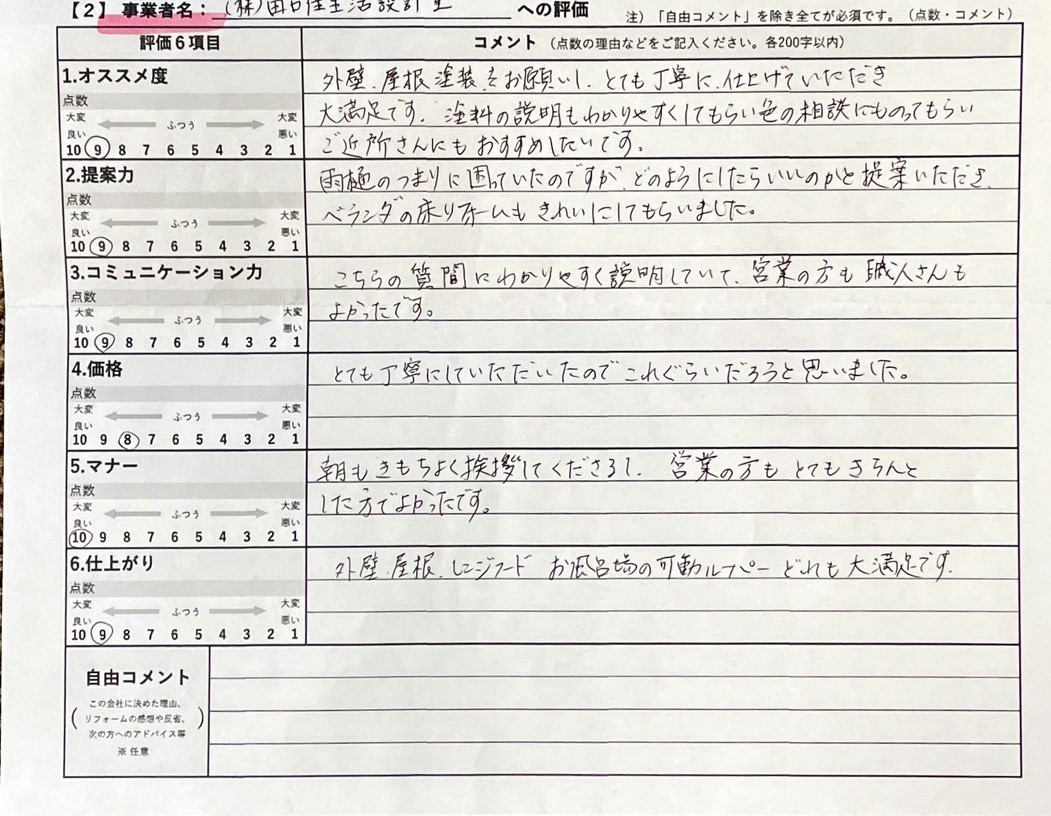 【2】事業者名： (株) 住生活設計室 への評価
注）「自由コメント」を除き全てが必須です。（点数・コメント）
評価6項目
コメント （点数の理由などをご記入ください。各200字以内）
1.オススメ度
点数
大変良い ふつう 大変悪い
10 9 8 7 6 5 4 3 2 1
外壁、屋根塗装をお願いし、とても丁寧に、仕上げていただき
大満足です。塗料の説明もわかりやすくしてもらい色の相談にものってもらい
ご近所さんにもおすすめしたいです。
2.提案力
点数
大変良い ふつう 大変悪い
10 9 8 7 6 5 4 3 2 1
雨樋のつまりに困っていたのですが、どのようにしたらいいのかと提案いただき、
ベランダの床リフォームもきれいにしてもらいました。
3.コミュニケーション力
点数
大変良い ふつう 大変悪い
10 9 8 7 6 5 4 3 2 1
こちらの質問にわかりやすく説明していて、営業の方も職人さんも
よかったです。
4.価格
点数
大変良い ふつう 大変悪い
10 9 8 7 6 5 4 3 2 1
とても丁寧にしていただいたのでこれぐらいだろうと思いました。
5.マナー
点数
大変良い ふつう 大変悪い
10 9 8 7 6 5 4 3 2 1
朝もきもちよく挨拶してくださるし、営業の方もとてもきちんと
した方でよかったです。
6.仕上がり
点数
大変良い ふつう 大変悪い
10 9 8 7 6 5 4 3 2 1
外壁、屋根、レンジフード お風呂場の可動ルーバー どれも大満足です。
自由コメント
（この会社に決めた理由、
リフォームの感想や反省、
次の方へのアドバイス等）
※任意